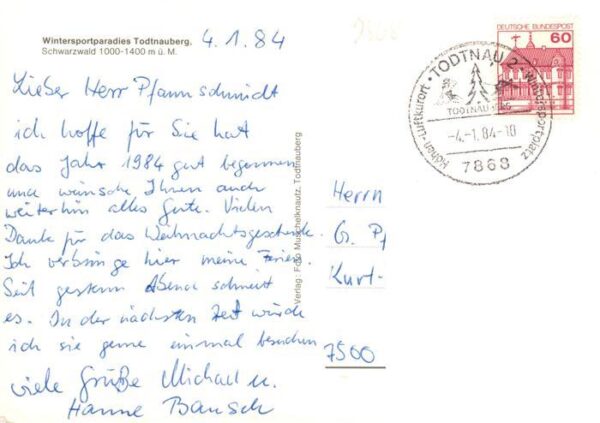 Wintersportparadies Todtnauberg,
Schwarzwald 1000-1400 m ü. M.
4.1.84
Lieber Herr Pfannschmidt
ich hoffe für Sie hat
das Jahr 1984 gut begonnen
und wünsche Ihnen auch
weiterhin alles Gute. Vielen
Dank für das Weihnachtsgeschenk.
Ich verbringe hier meine Ferien.
Seit gestern Abend schneit
es. In der nächsten Zeit würde
ich sie gerne einmal besuchen
viele Grüße Michael u.
Hanne Bausch
Verlag: Foto Muschelknautz, Todtnauberg
DEUTSCHE BUNDESPOST
60
TODTNAU 2
Wintersportplatz
Höhen-Luftkurort
TODTNAU
-4.-1.84-10
7868
Herrn
G. Pf
Kurt-
7500